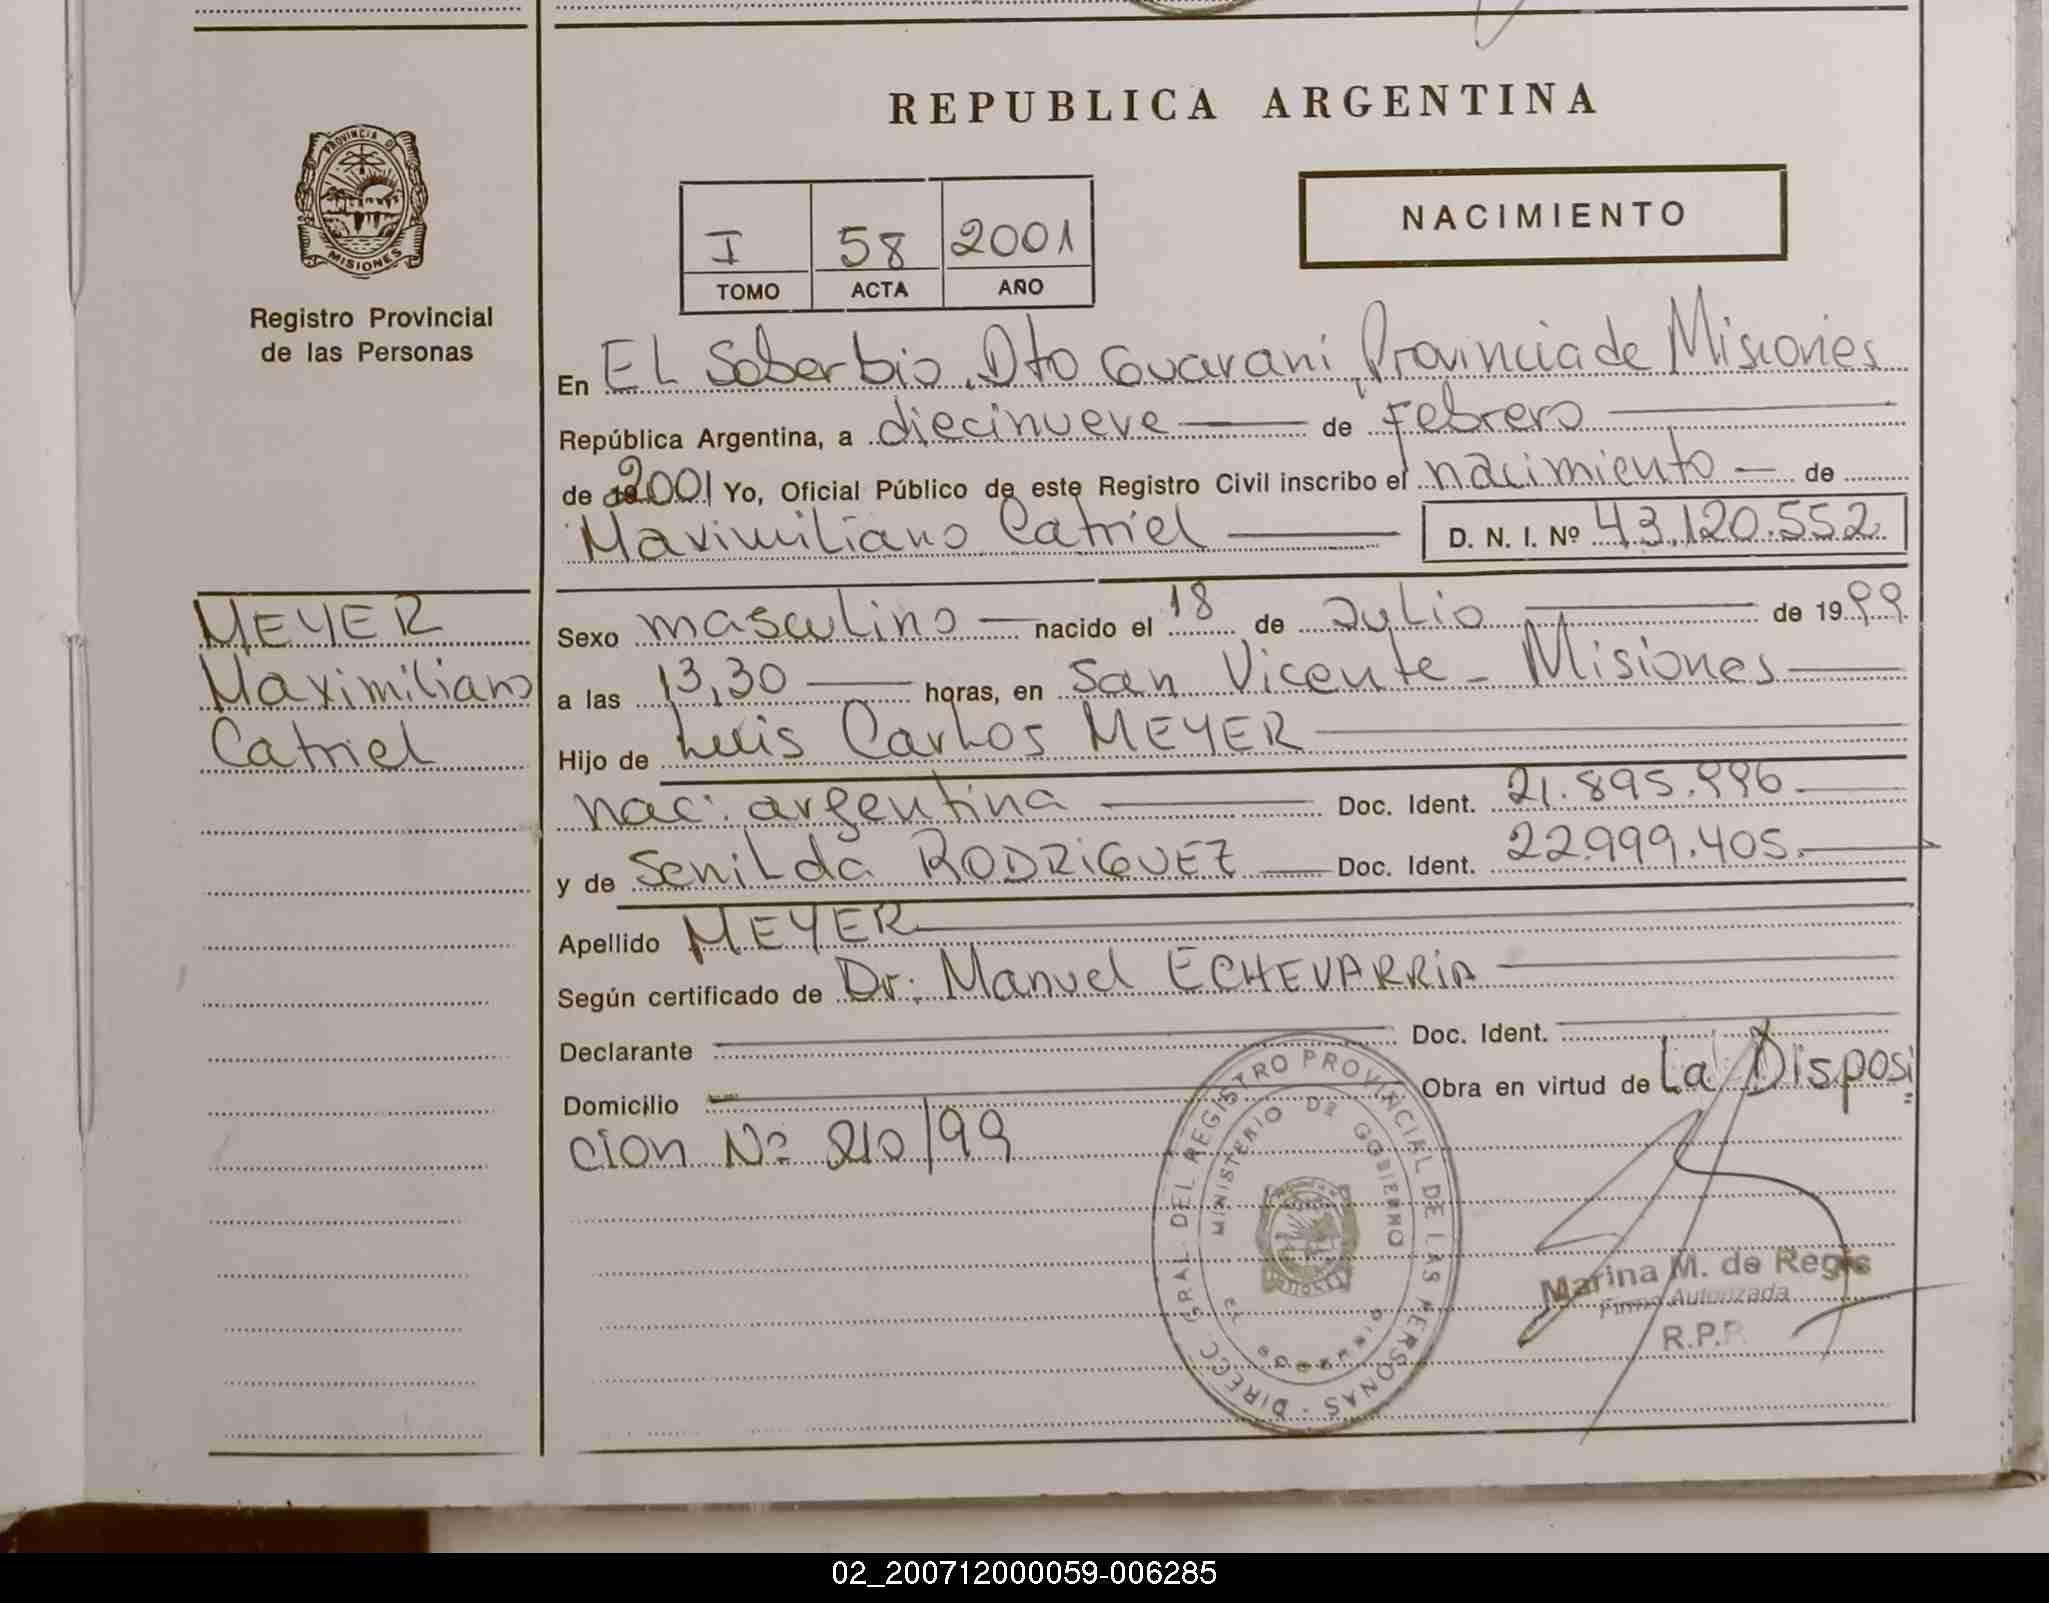 REPUBLICA ARGENTINA
PROVINCIA D
MISIONES
Registro Provincial
de las Personas
I 58 2001
TOMO ACTA AÑO
NACIMIENTO
En El Soberbio, Dto Guarani, Provincia de Misiones
República Argentina, a diecinueve de Febrero
de 2001 Yo, Oficial Público de este Registro Civil inscribo el nacimiento de
Maximiliano Catriel D. N. I. Nº 43.120.552
MEYER
Maximiliano
Catriel
Sexo masculino nacido el 18 de Julio de 1999
a las 13,30 horas, en San Vicente - Misiones
Hijo de Luis Carlos MEYER
nac: argentina Doc. Ident. 21.895.996
y de Senilda RODRIGUEZ Doc. Ident. 22.999.405.
Apellido MEYER
Según certificado de Dr. Manuel ECHEVARRIA
Declarante Doc. Ident.
Domicilio Obra en virtud de La Disposi
cion Nº 210/99
DIRECC. GRAL. DEL REGISTRO PROVINCIAL DE LAS PERSONAS
MINISTERIO DE GOBIERNO
Marina M. de Regis
Firma Autorizada
R.P.P.
02_200712000059-006285